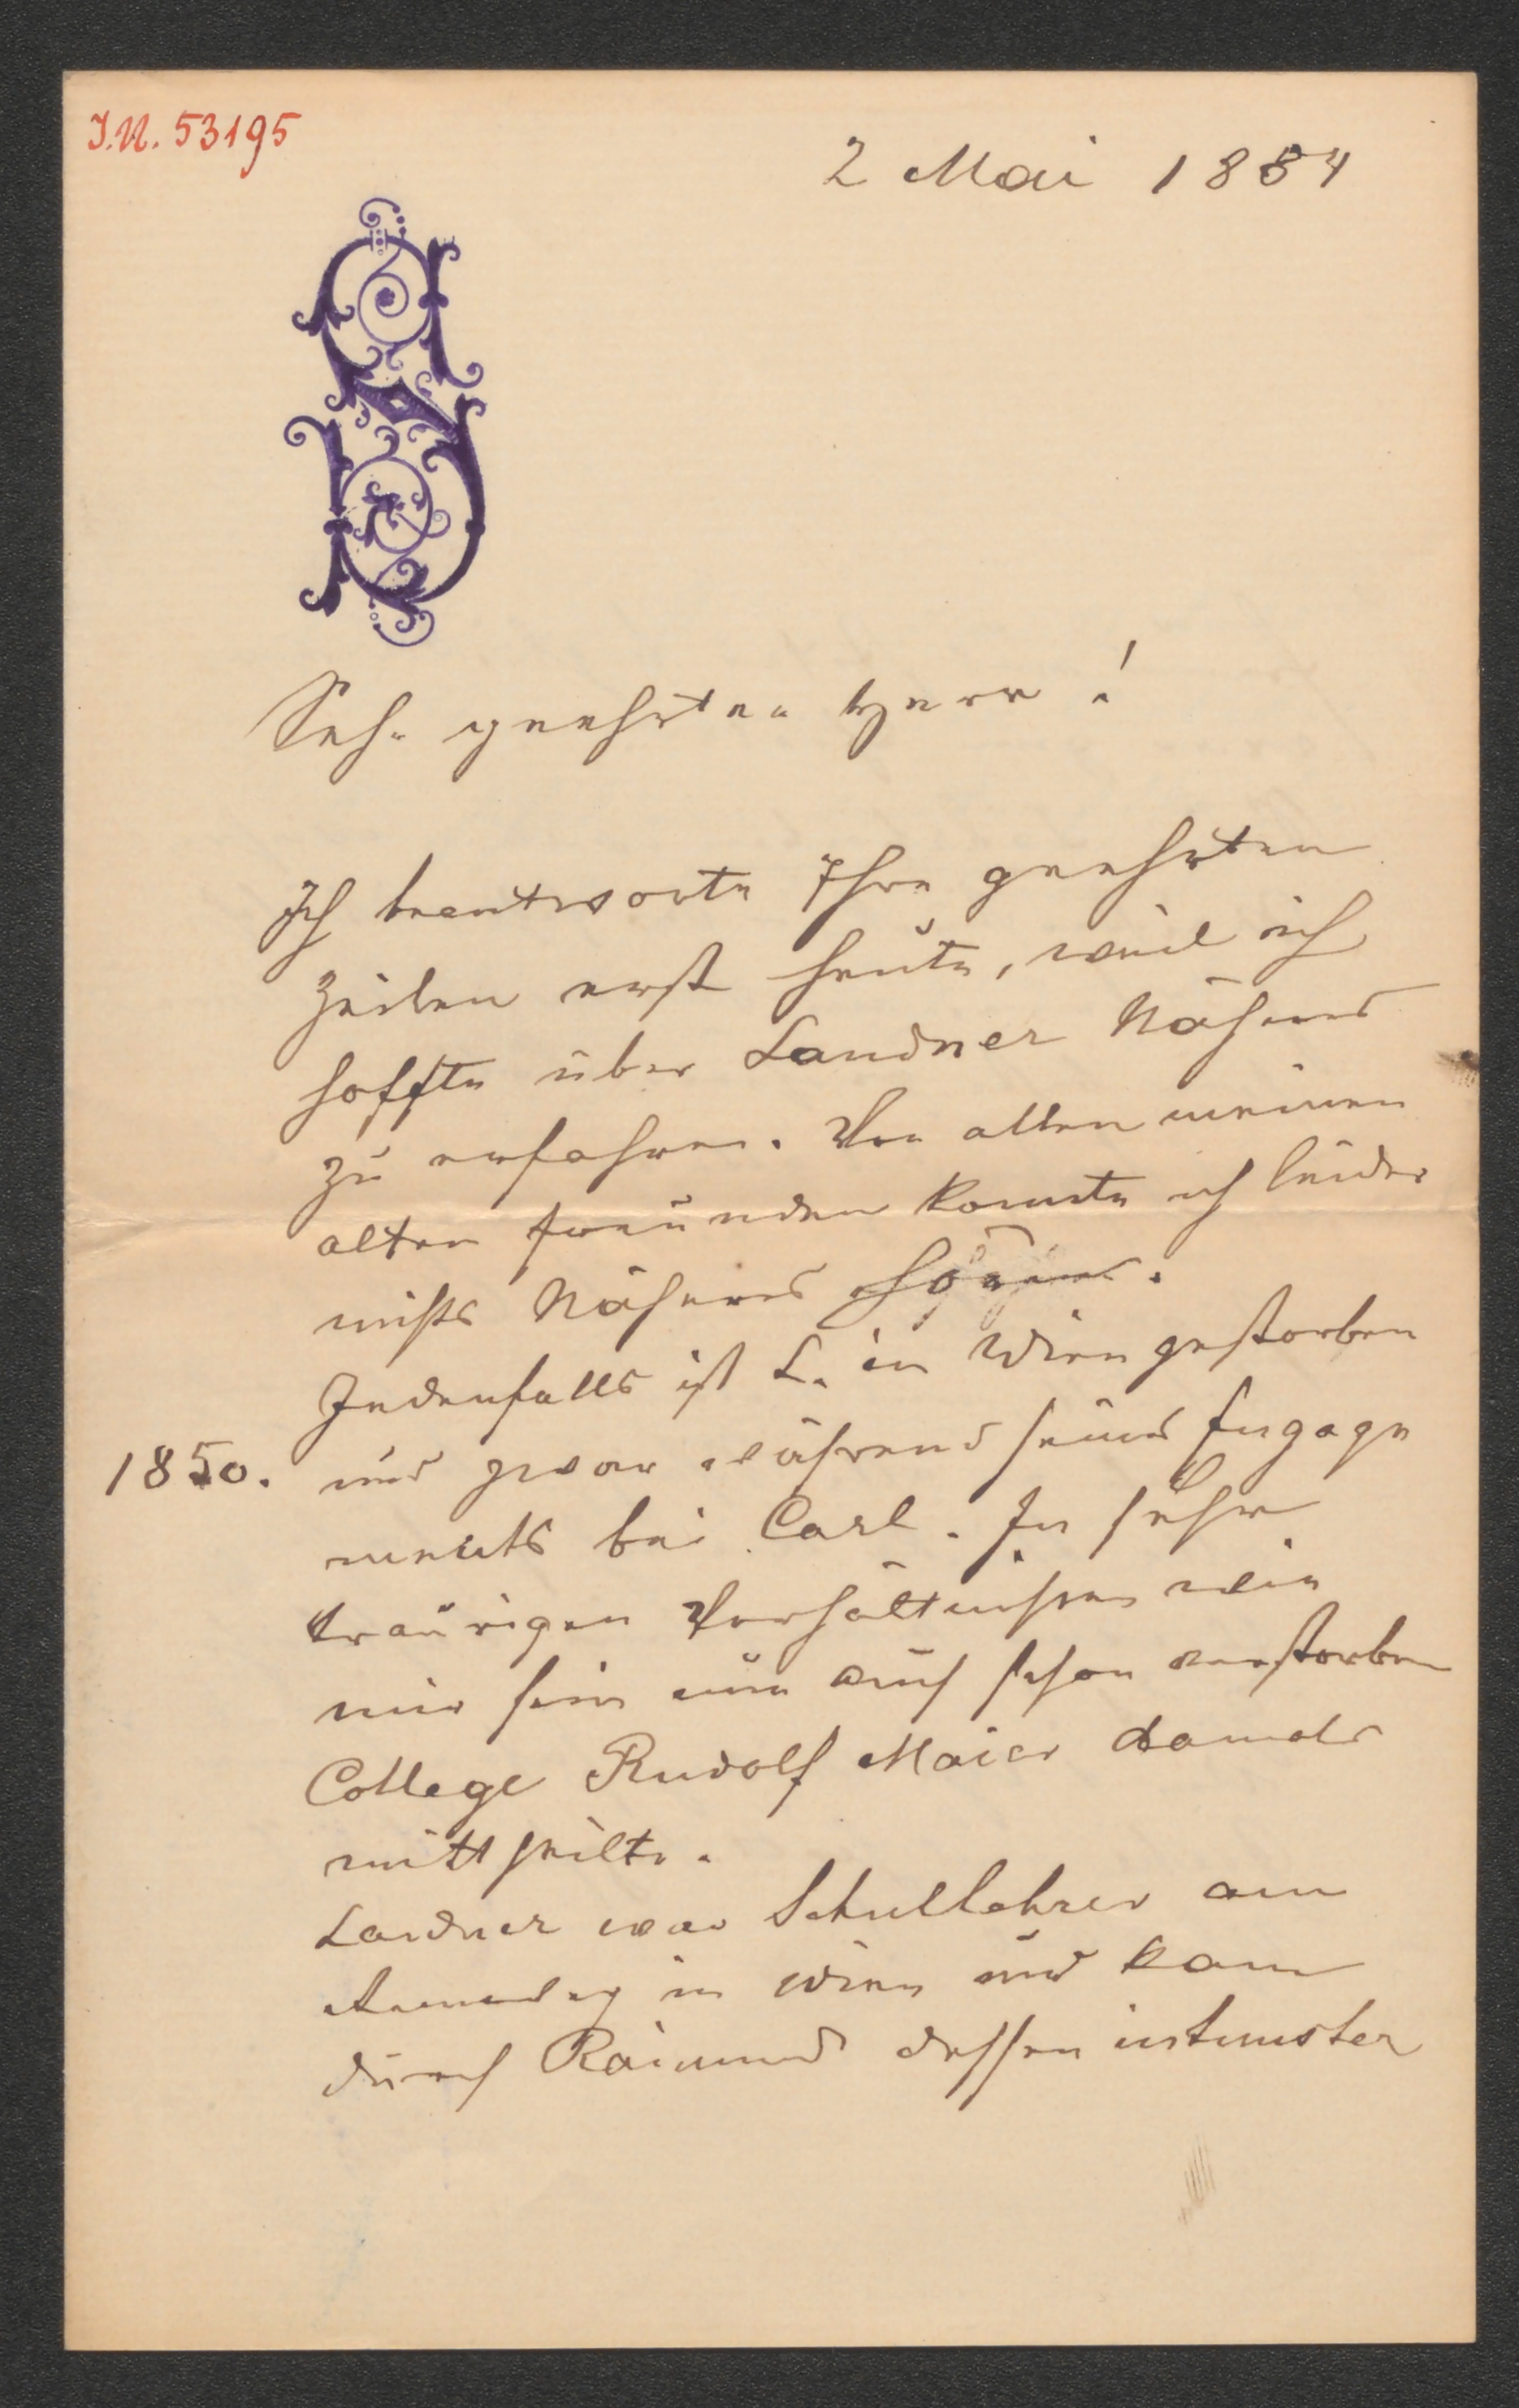 I.N. 53195
2 Mai 1884
Sehr geehrter Herr!
Ich beantworte Ihre geehrten
Zeilen erst heute, weil ich
hoffte über Landner Näheres
zu erfahren. Von allen meinen
alten Freunden konnte ich leider
nichts Näheres hören.
Jedenfalls ist L. in Wien gestorben
1850. und zwar während seines Engage
ments bei Carl. In sehr
traurigen Verhältnissen wie
mir sein nun auch schon verstorben
College Rudolf Maier damals
mittheilte.
Landner war Schullehrer am
in Wien und kam
durch Raimund dessen intimster